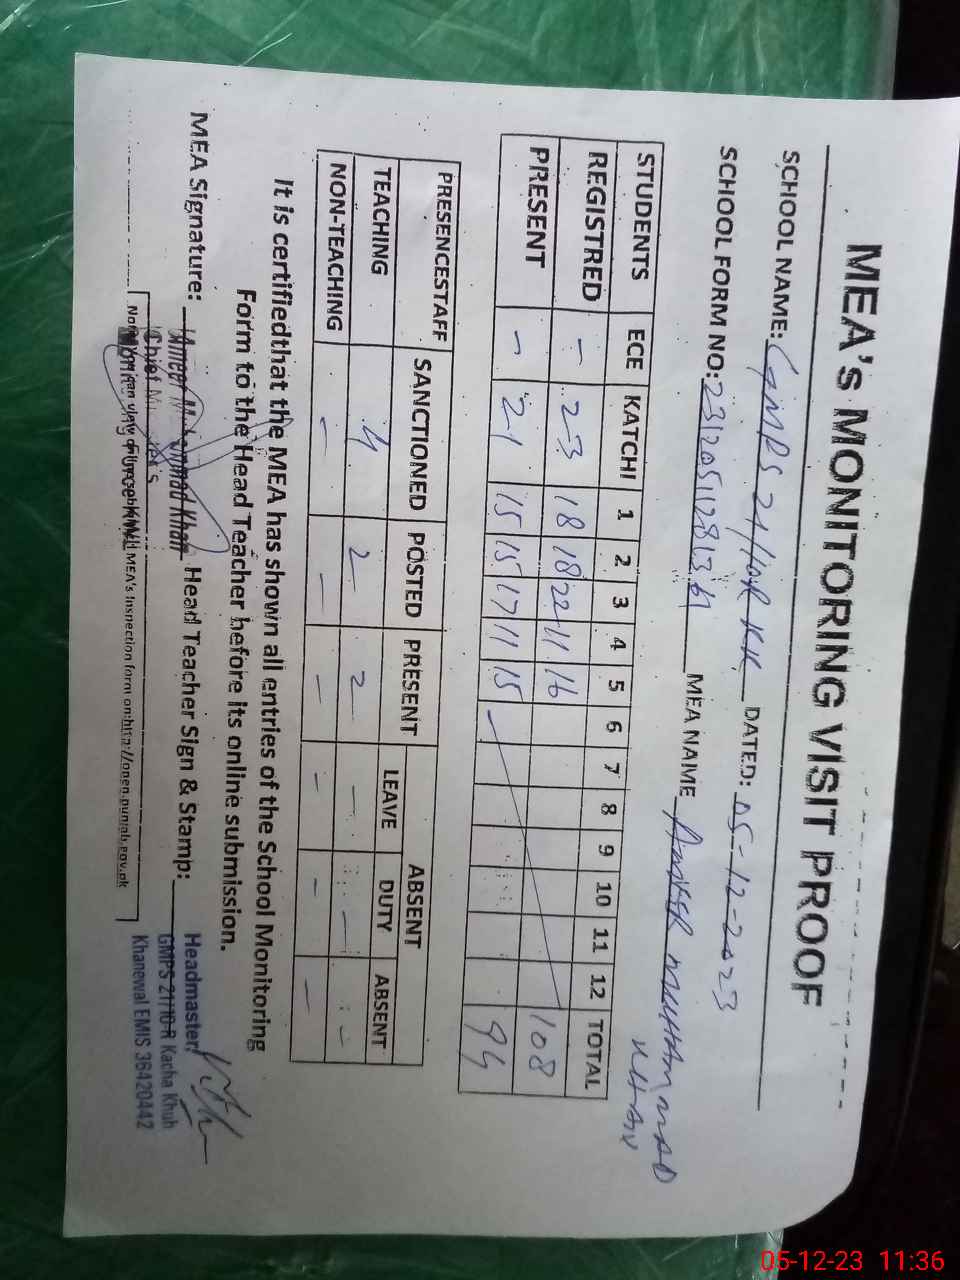 MEA's MONITORING VISIT PROOF
SCHOOL NAME: GMPS 21/10R KK DATED: 05-12-2023
SCHOOL FORM NO: MEA NAME AMEER MUHAMMAD
KHAN
STUDENTS ECE KATCHI 1 2 3 4 5 6 7 8 9 10 11 12 TOTAL
REGISTRED - 23 18 18 22 11 16 108
PRESENT - 21 15 15 17 11 15 94
PRESENCESTAFF SANCTIONED POSTED PRESENT ABSENT
LEAVE DUTY ABSENT
TEACHING 4 2 2 - - -
NON-TEACHING - - - - - -
It is certifiedthat the MEA has shown all entries of the School Monitoring
Form to the Head Teacher before its online submission.
MEA Signature: Ameer Muhammad Khan Head Teacher Sign & Stamp:
Chief
MEA's Inspection form on:http://open.punjab.gov.pk
Headmaster
GMPS 21/10-R Kacha Khuh
Khanewal EMIS 36420442
05-12-23 11:36